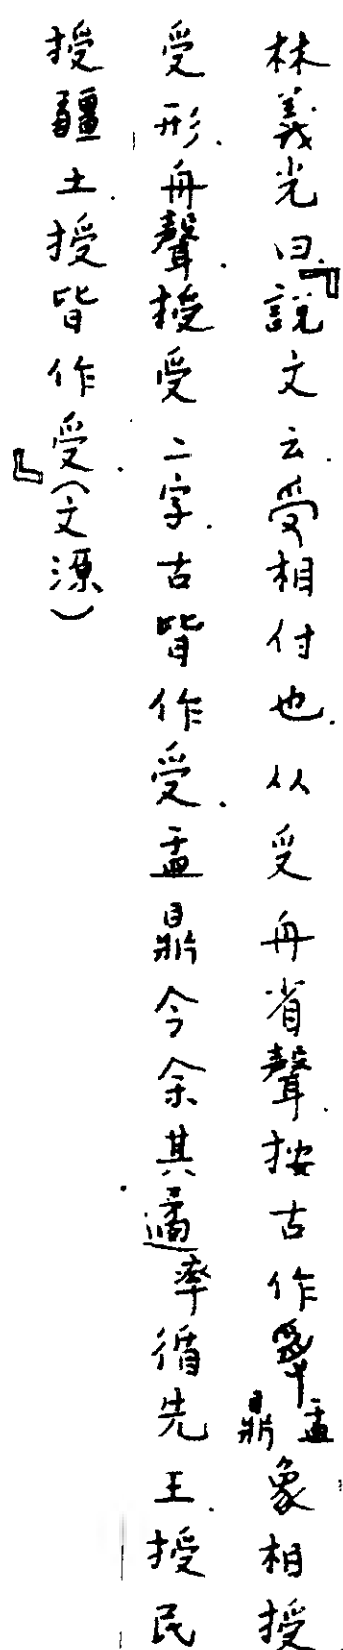 林義光曰『說文云.受相付也.从𠬪舟省聲.按古作盂鼎象相授
受形.舟聲.授受二字.古皆作受.盂鼎今余其遹率循先王.授民
授疆土.授皆作受.(文源)』